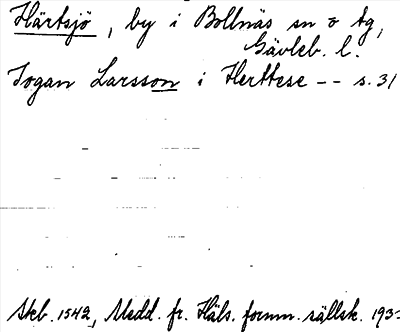 Härtsjö, by i Bollnäs sn o tg,
Gävleb. l.
Jogan Larsson i Herttese -- s. 31
Skb. 1542, Medd. fr. Häls. fornm. sällsk. 193